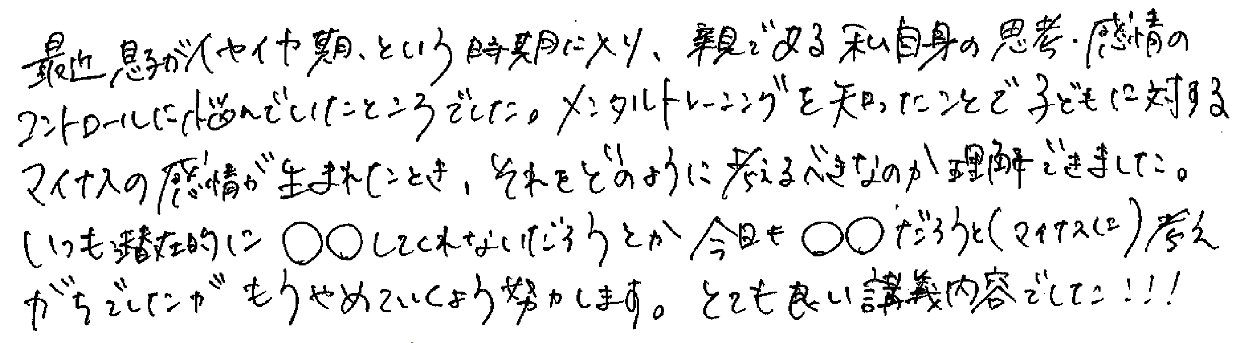 最近息子がイヤイヤ期、という時期に入り、親である私自身の思考・感情の
コントロールに悩んでいたところでした。メンタルトレーニングを知ったことで子どもに対する
マイナスの感情が生まれたとき、それをどのように考えるべきなのか理解できました。
いつも潜在的に〇〇してくれないだろうとか今日も〇〇だろうと(マイナスに)考え
がちでしたがもうやめていくよう努力します。とても良い講義内容でした!!!